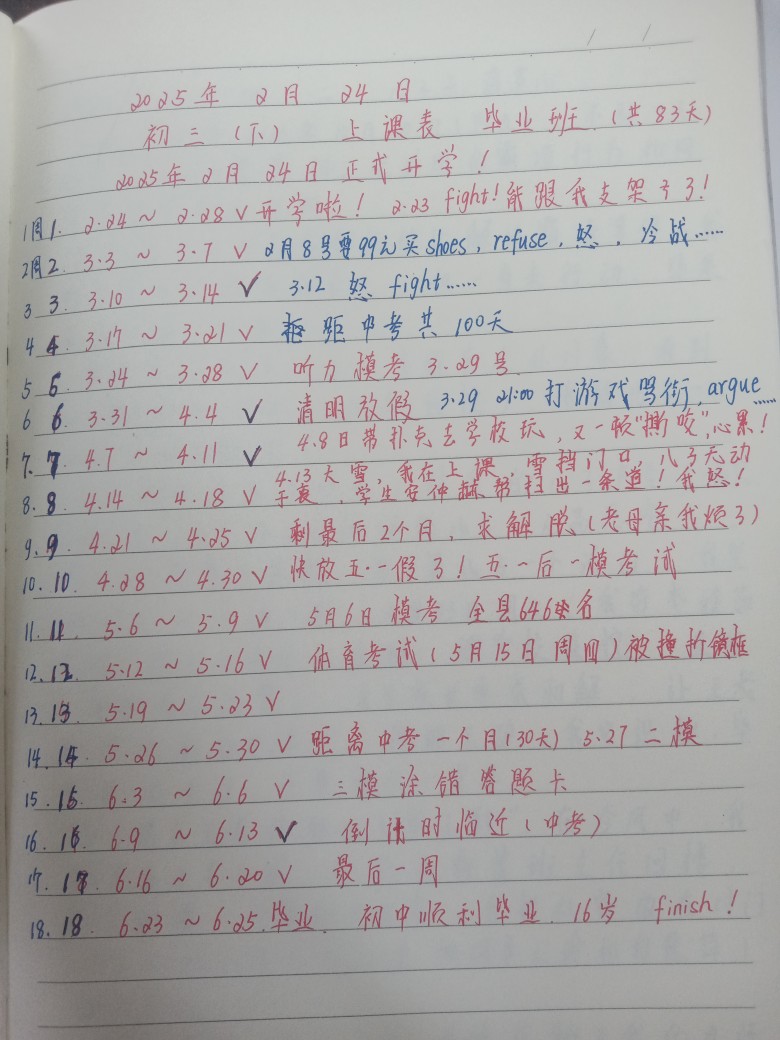 2025年 2月 24日
初三(下) 上课表 毕业班.(共83天)
2025年2月24日正式开学!
1周1. 2.24 ~ 2.28 √ 开学啦! 2.23 fight! 能跟我支架子了!
2周2. 3.3 ~ 3.7 √ 2月8号要99元买shoes, refuse, 怒, 冷战……
3 3. 3.10 ~ 3.14 √ 3.12 怒 fight……
4 4. 3.17 ~ 3.21 √ 距中考共100天
5 5. 3.24 ~ 3.28 √ 听力模考 3.29号.
6 6. 3.31 ~ 4.4 √ 清明放假 3.29 21:00 打游戏骂街, argue……
7.7. 4.7 ~ 4.11 √ 4.8日带扑克去学校玩, 又一顿"撕咬",心累!
8.8. 4.14 ~ 4.18 √ 4.13大雪, 我在上课, 雪挡门口, 儿子无动
于衷, 学生安仲赫帮扫出一条道! 我怒!
9.9. 4.21 ~ 4.25 √ 剩最后2个月, 求解脱(老母亲我烦了)
10.10. 4.28 ~ 4.30 √ 快放五·一假了! 五·一后一模考试
11.11. 5.6 ~ 5.9 √ 5月6日 模考 全县646名
12.12. 5.12 ~ 5.16 √ 体育考试(5月15日 周四)被撞折镜框
13.13. 5.19 ~ 5.23 √
14.14. 5.26 ~ 5.30 √ 距离中考一个月(30天) 5.27 二模
15.15. 6.3 ~ 6.6 √ 三模涂错答题卡
16.16. 6.9 ~ 6.13 √ 倒计时临近(中考)
17.17. 6.16 ~ 6.20 √ 最后一周
18.18. 6.23 ~ 6.25.毕业. 初中顺利毕业. 16岁 finish!